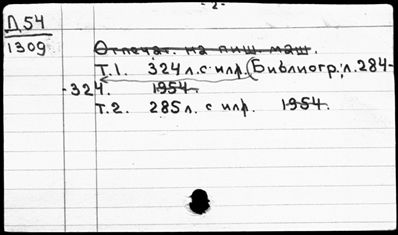 - 2 -
Д54
1309
Отпечат. на пиш. маш.
Т.1. 324 л. с илр. (Библиогр., л. 284-
-324. 1954.
Т.2. 285 л. с илр. 1954.